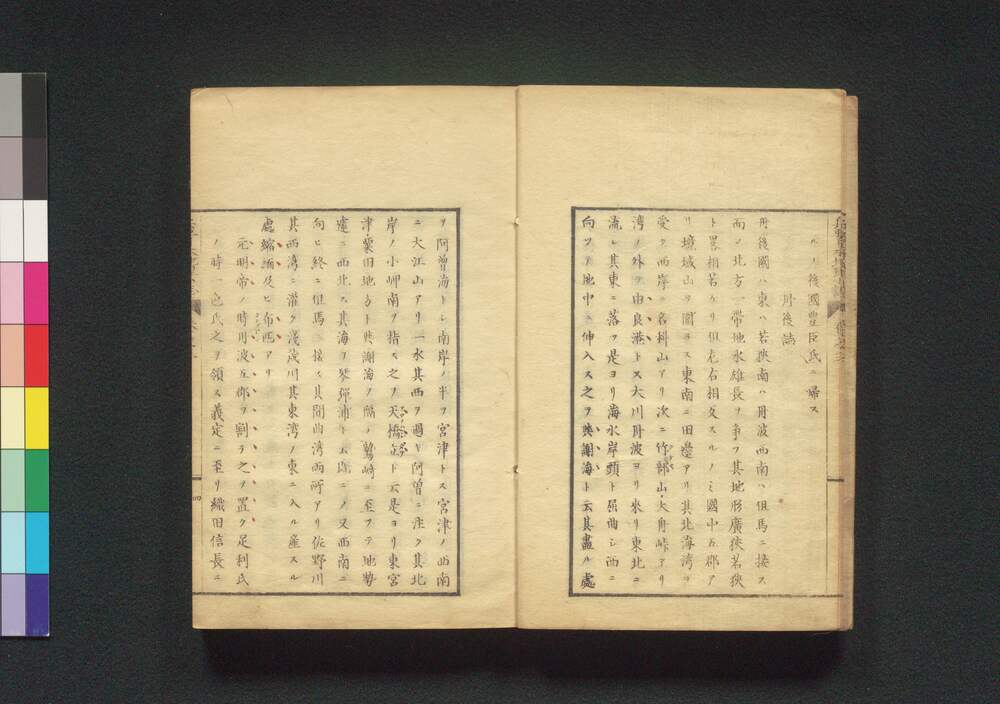 ルノ後國豊臣氏ニ歸ス
丹後誌
丹後國ハ東ハ若狹南ハ丹波西南ハ但馬ニ接ス
而シ北方一帶地水雄長ヲ爭フ其地形廣狹若狹
ト畧相若ケリ但左右相交スルノミ國中五郡ア
リ境域山ヲ闢ラス東南ニ田邊アリ其北海湾ヲ
受ク西岸ニ名科山アリ次ニ竹部山大舟峠アリ
湾ノ外ヲ由良港トス大川丹波ヨリ來リ東北ニ
流レ其東ニ落ツ是ヨリ海水岸頭ト屈曲シ西ニ
向ツテ地中ニ伸入ス之ヲ與謝海ト云其盡ル處
ヲ阿曽海トシ南岸ノ半ヲ宮津トス宮津ノ西南
ニ大江山アリ一水其西ヲ過ギ阿曽ニ注ク其北
岸ノ小岬南ヲ指ス之ヲ天橋立ト云是ヨリ東宮
津粟田地方ト與謝海ヲ隔テ鷲崎ニ至ツテ地勢
遽ニ西北ス其海ヲ琴彈浦トス既ニノ又西南ニ
向ヒ終ニ但馬ニ接ス其間曲湾両所アリ佐野川
其西湾ニ灌ク淺茂川其東湾ノ東ニ入ル産スル
處縮緬及ヒ布西アリ
元明帝ノ時丹波五郡ヲ割テ之ヲ置ク足利氏
ノ時一色氏之ヲ領ス義定ニ至リ織田信長ニ
四